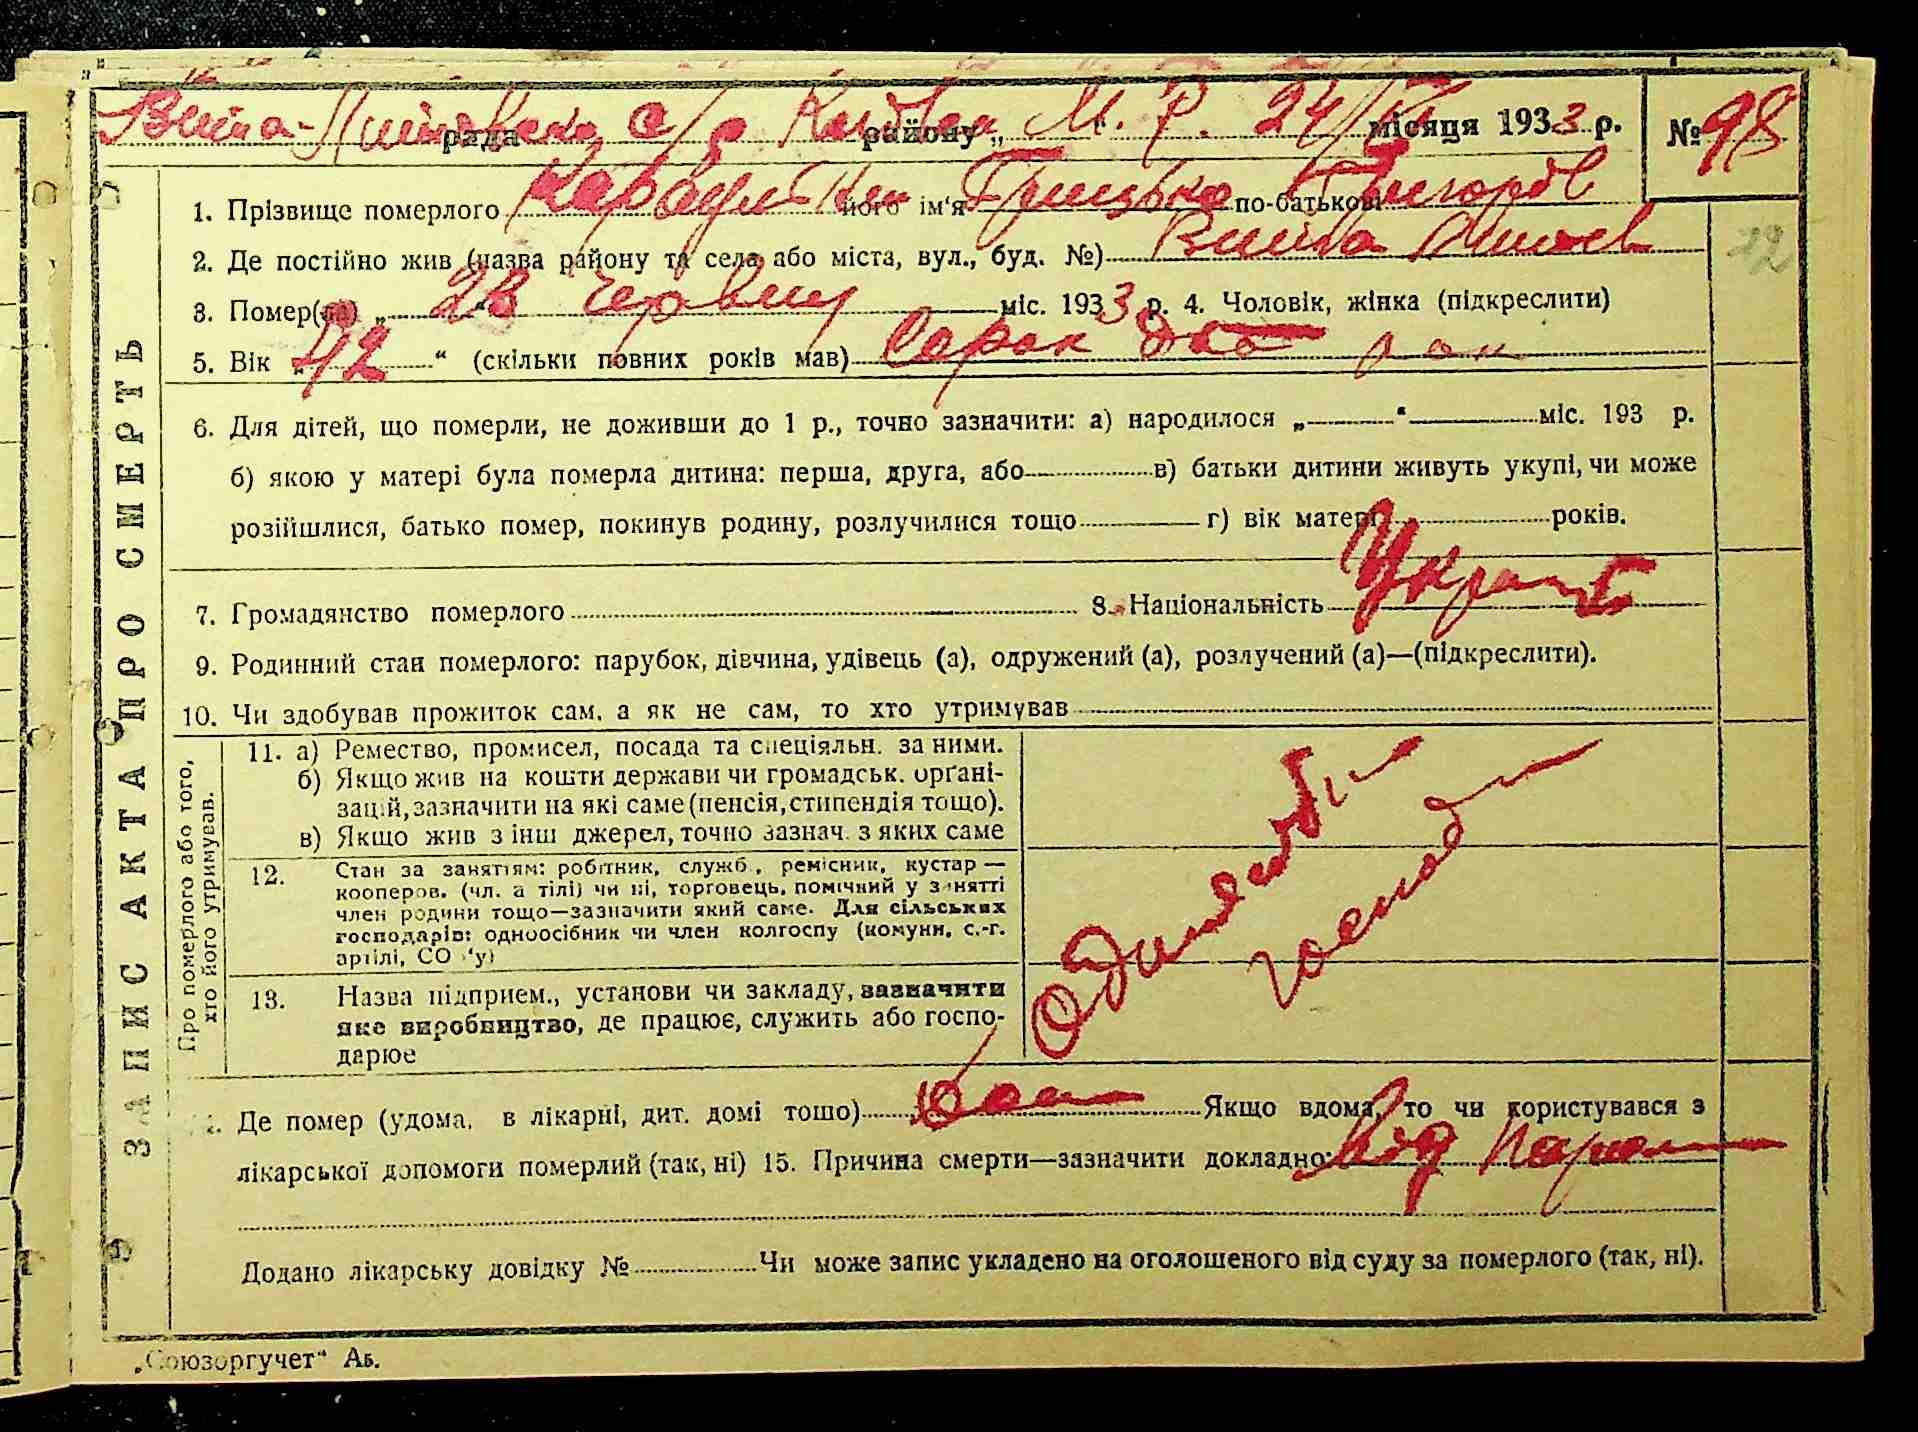 Вита-Литовська с/р рада Київськ району „ М. Р. 24/VI місяця 1933 р. № 98
ЗАПИС АКТА ПРО СМЕРТЬ
1. Прізвище померлого його ім'я Грицько по-батькові Григоров
2. Де постійно жив (назва району та села або міста, вул., буд. №) Вита Литов
3. Помер(ла) „ 23 “ червня міс. 1933 р. 4. Чоловік, жінка (підкреслити)
5. Вік „ 42 “ (скільки повних років мав) Сорок два рок
6. Для дітей, що померли, не доживши до 1 р., точно зазначити: а) народилося „ “ міс. 193 р.
б) якою у матері була померла дитина: перша, друга, або в) батьки дитини живуть укупі, чи може
розійшлися, батько помер, покинув родину, розлучилися тощо г) вік матері років.
7. Громадянство померлого 8. Національність Украин
9. Родинний стан померлого: парубок, дівчина, удівець (а), одружений (а), розлучений (а)—(підкреслити).
10. Чи здобував прожиток сам, а як не сам, то хто утримував
Про померлого або того, хто його утримував.
11. а) Ремество, промисел, посада та спеціяльн. за ними.
б) Якщо жив на кошти держави чи громадськ. органі-
зацій, зазначити на які саме (пенсія, стипендія тощо).
в) Якщо жив з інш джерел, точно зазнач. з яких саме
12. Стан за заняттям: робітник, служб., ремісник, кустар —
кооперов. (чл. артілі) чи ні, торговець, помічний у занятті
член родини тощо—зазначити який саме. Для сільських
господарів: одноосібник чи член колгоспу (комуни, с.-г.
артілі, СОЗ'у)
13. Назва підприєм., установи чи закладу, зазначити
яке виробництво, де працює, служить або госпо-
дарює
Одноособн
господ
Де помер (удома, в лікарні, дит. домі тощо) Якщо вдома, то чи користувався з
лікарської допомоги померлий (так, ні) 15. Причина смерти—зазначити докладно: від
Додано лікарську довідку № Чи може запис укладено на оголошеного від суду за померлого (так, ні).
„Союзоргучет“ Аб.